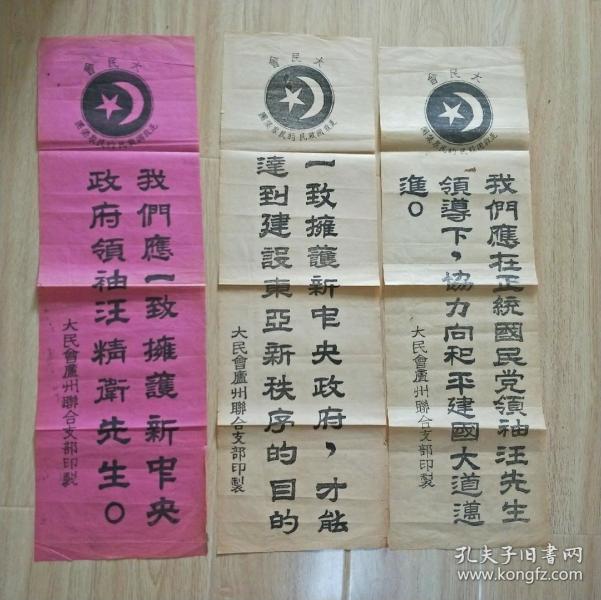 大民會
我們應一致擁護新中央
政府領袖汪精衛先生。
大民會廬州聯合支部印製
大民會
一致擁護新中央政府，才能
達到建設東亞新秩序的目的
大民會廬州聯合支部印製
大民會
我們應在正統國民党領袖汪先生
領導下，協力向和平建國大道邁
進。
大民會廬州聯合支部印製
孔夫子旧书网
www.kongfz.com